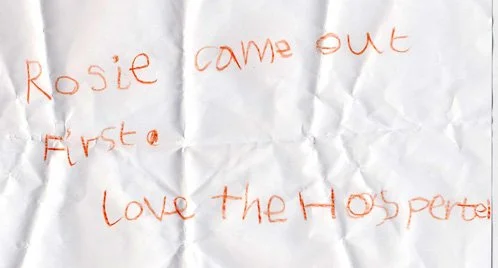 Rosie came out
First.
Love the Hospertel